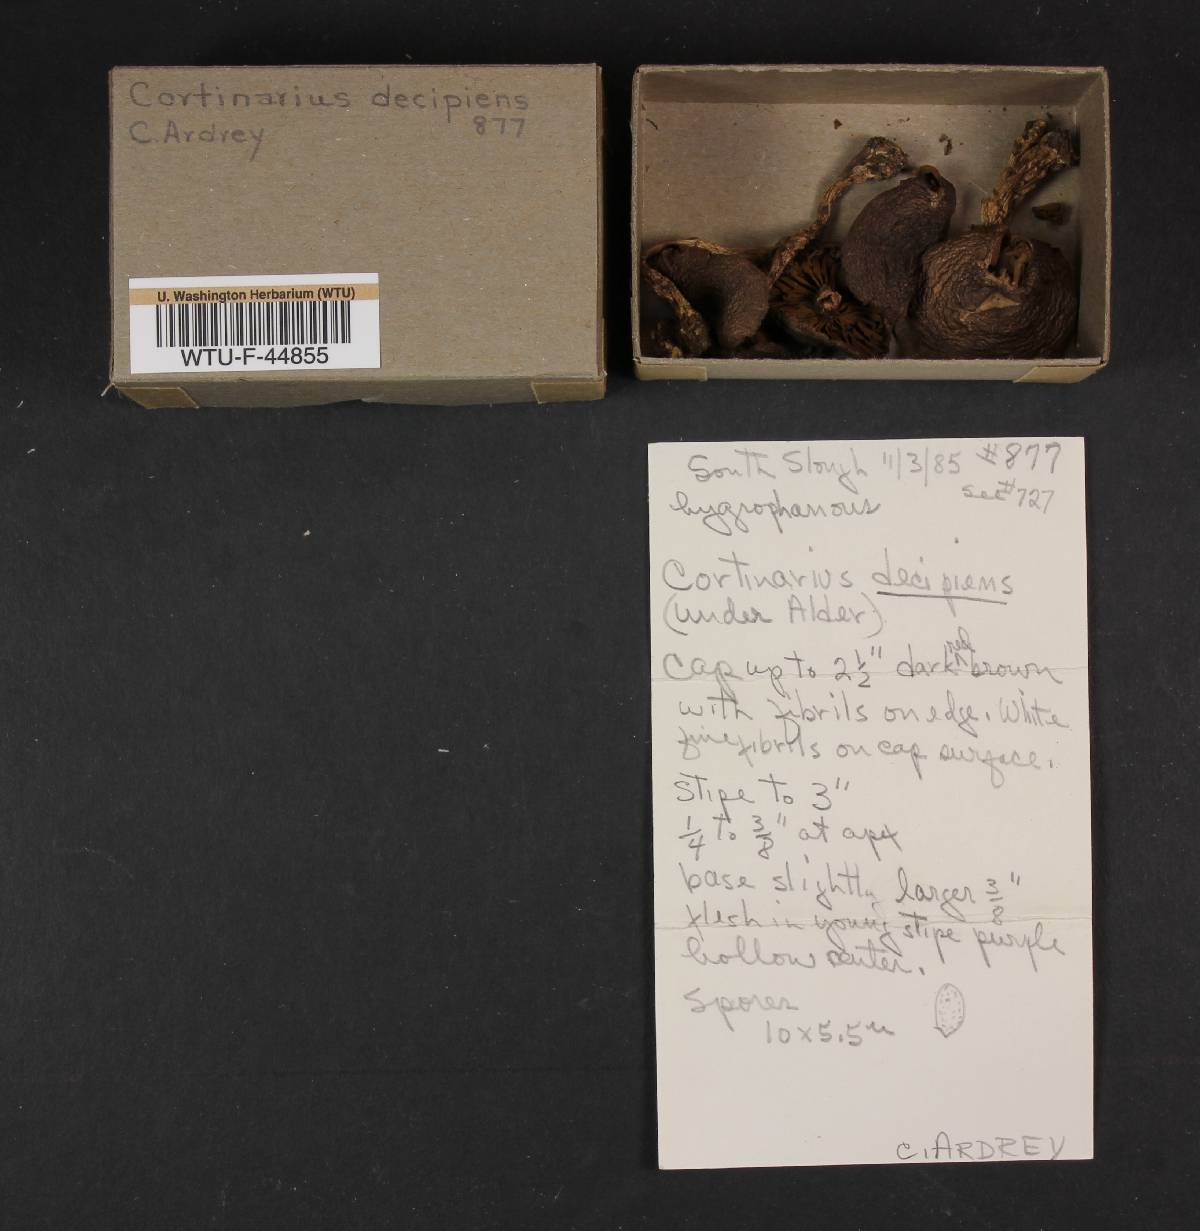 Cortinarius decipiens
C. Ardrey 877
U. Washington Herbarium (WTU)
WTU-F-44855
South Slough 11/3/85 #877
see #727
hygrophanous
Cortinarius decipiens
(under Alder)
Cap up to 2 1/2" dark red brown
with fibrils on edge. White
fine fibrils on cap surface.
Stipe to 3"
1/4 to 3/8" at apex
base slightly larger 3/8"
flesh in young stipe purple
hollow center.
Spores
10x5.5u
C. ARDREY